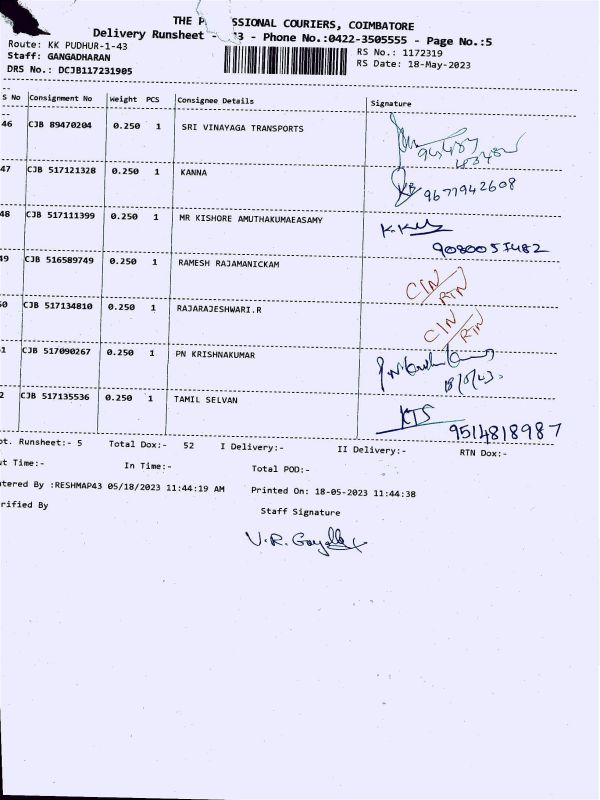 THE P SSIONAL COURIERS, COIMBATORE
Delivery Runsheet - 43 - Phone No.:0422-3505555 - Page No.:5
Route: KK PUDHUR-1-43
RS No.: 1172319
Staff: GANGADHARAN
RS Date: 18-May-2023
DRS No.: DCJB117231905
S No Consignment No Weight PCS Consignee Details Signature
46 CJB 89470204 0.250 1 SRI VINAYAGA TRANSPORTS
47 CJB 517121328 0.250 1 KANNA 9677942608
48 CJB 517111399 0.250 1 MR KISHORE AMUTHAKUMAEASAMY
49 CJB 516589749 0.250 1 RAMESH RAJAMANICKAM CIN/RTN
50 CJB 517134810 0.250 1 RAJARAJESHWARI.R CIN/RTN
51 CJB 517090267 0.250 1 PN KRISHNAKUMAR
2 CJB 517135536 0.250 1 TAMIL SELVAN KTS
9514818987
ot. Runsheet:- 5 Total Dox:- 52 I Delivery:- II Delivery:- RTN Dox:-
ut Time:- In Time:- Total POD:-
tered By :RESHMAP43 05/18/2023 11:44:19 AM Printed On: 18-05-2023 11:44:38
rified By Staff Signature